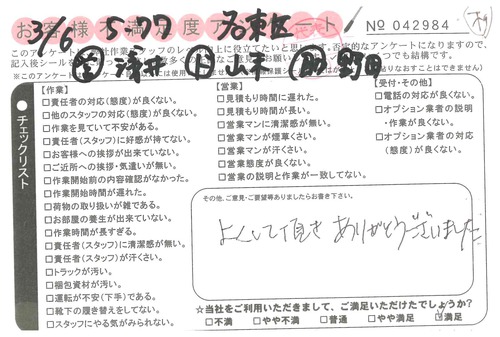 お客様満足度アンケート
3/16 5-77 名東区
No 042984
㊎浅井 ㊐山本 ㊖野田
【作業】
□責任者の対応(態度)が良くない。
□他のスタッフの対応(態度)が良くない。
□作業を見ていて不安がある。
□責任者(スタッフ)に好感が持てない。
□お客様への挨拶が出来ていない。
□ご近所への挨拶・気遣いが無い。
□作業開始前の内容確認がなかった。
□作業開始時間が遅れた。
□荷物の取り扱いが雑である。
□お部屋の養生が出来ていない。
□作業時間が長すぎる。
□責任者(スタッフ)に清潔感が無い。
□責任者(スタッフ)が汗くさい。
□トラックが汚い。
□梱包資材が汚い。
□運転が不安(下手)である。
□靴下の履き替えをしてない。
□スタッフにやる気がみられない。
【営業】
□見積もり時間に遅れた。
□見積もり時間が長い。
□営業マンに清潔感が無い。
□営業マンが煙草くさい。
□営業マンが汗くさい。
□営業態度が良くない。
□営業の説明と作業が一致してない。
【受付・その他】
□電話の対応が良くない。
□オプション業者の説明
・作業が良くない。
□オプション業者の対応
(態度)が良くない。
チェックリスト
その他、ご意見・ご要望等ありましたらお書き下さい。
よくして頂き ありがとうございました
☆当社をご利用いただきまして、ご満足いただけたでしょうか?
□不満 □やや不満 □普通 □やや満足 ☑満足